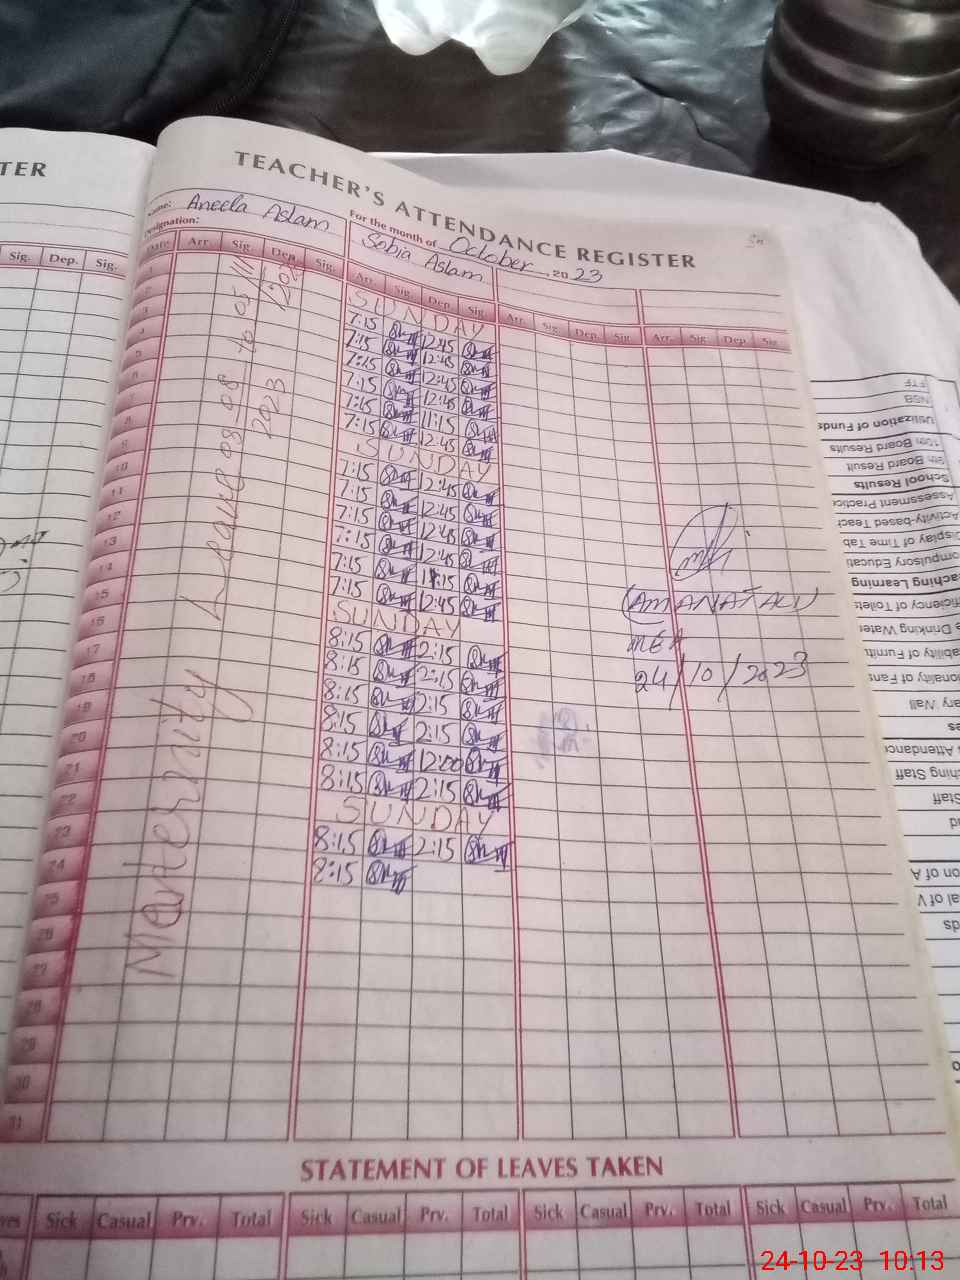 TER
TEACHER'S ATTENDANCE REGISTER
Name: Aneela Aslam
For the month of October, 2023
Designation:
Sobia Aslam
Sig. Dep. Sig.
Date Arr. Sig. Dep. Sig. Arr. Sig. Dep. Sig. Arr. Sig. Dep. Sig. Arr. Sig. Dep. Sig.
Maternity Leave 08/08/2023 to 05/11/2023
1 SUNDAY
2 7:15 12:45
3 7:15 12:45
4 7:15 12:45
5 7:15 12:45
6 7:15 11:15
7 7:15 12:45
8 SUNDAY
9 7:15 12:45
10 7:15 12:45
11 7:15 12:45
12 7:15 12:45
13 7:15 11:15
14 7:15 12:45
15 SUNDAY
16 8:15 2:15
17 8:15 2:15
18 8:15 2:15
19 8:15 2:15
20 8:15 12:00
21 8:15 2:15
22 SUNDAY
23 8:15 2:15
24 8:15
25
26
27
28
29
30
31
(AMANAT ALI)
MEA
24/10/2023
STATEMENT OF LEAVES TAKEN
Sick Casual Prv. Total Sick Casual Prv. Total Sick Casual Prv. Total Sick Casual Prv. Total
FTF
NSB
Utilization of Funds
10th Board Results
9th Board Result
School Results
Assessment Practice
Activity-based Teach
Display of Time Tab
ompulsory Educati
aching Learning
fficiency of Toilets
e Drinking Water
ability of Furnitu
onality of Fans
ary Wall
es
s Attendance
ching Staff
Staff
24-10-23 10:13